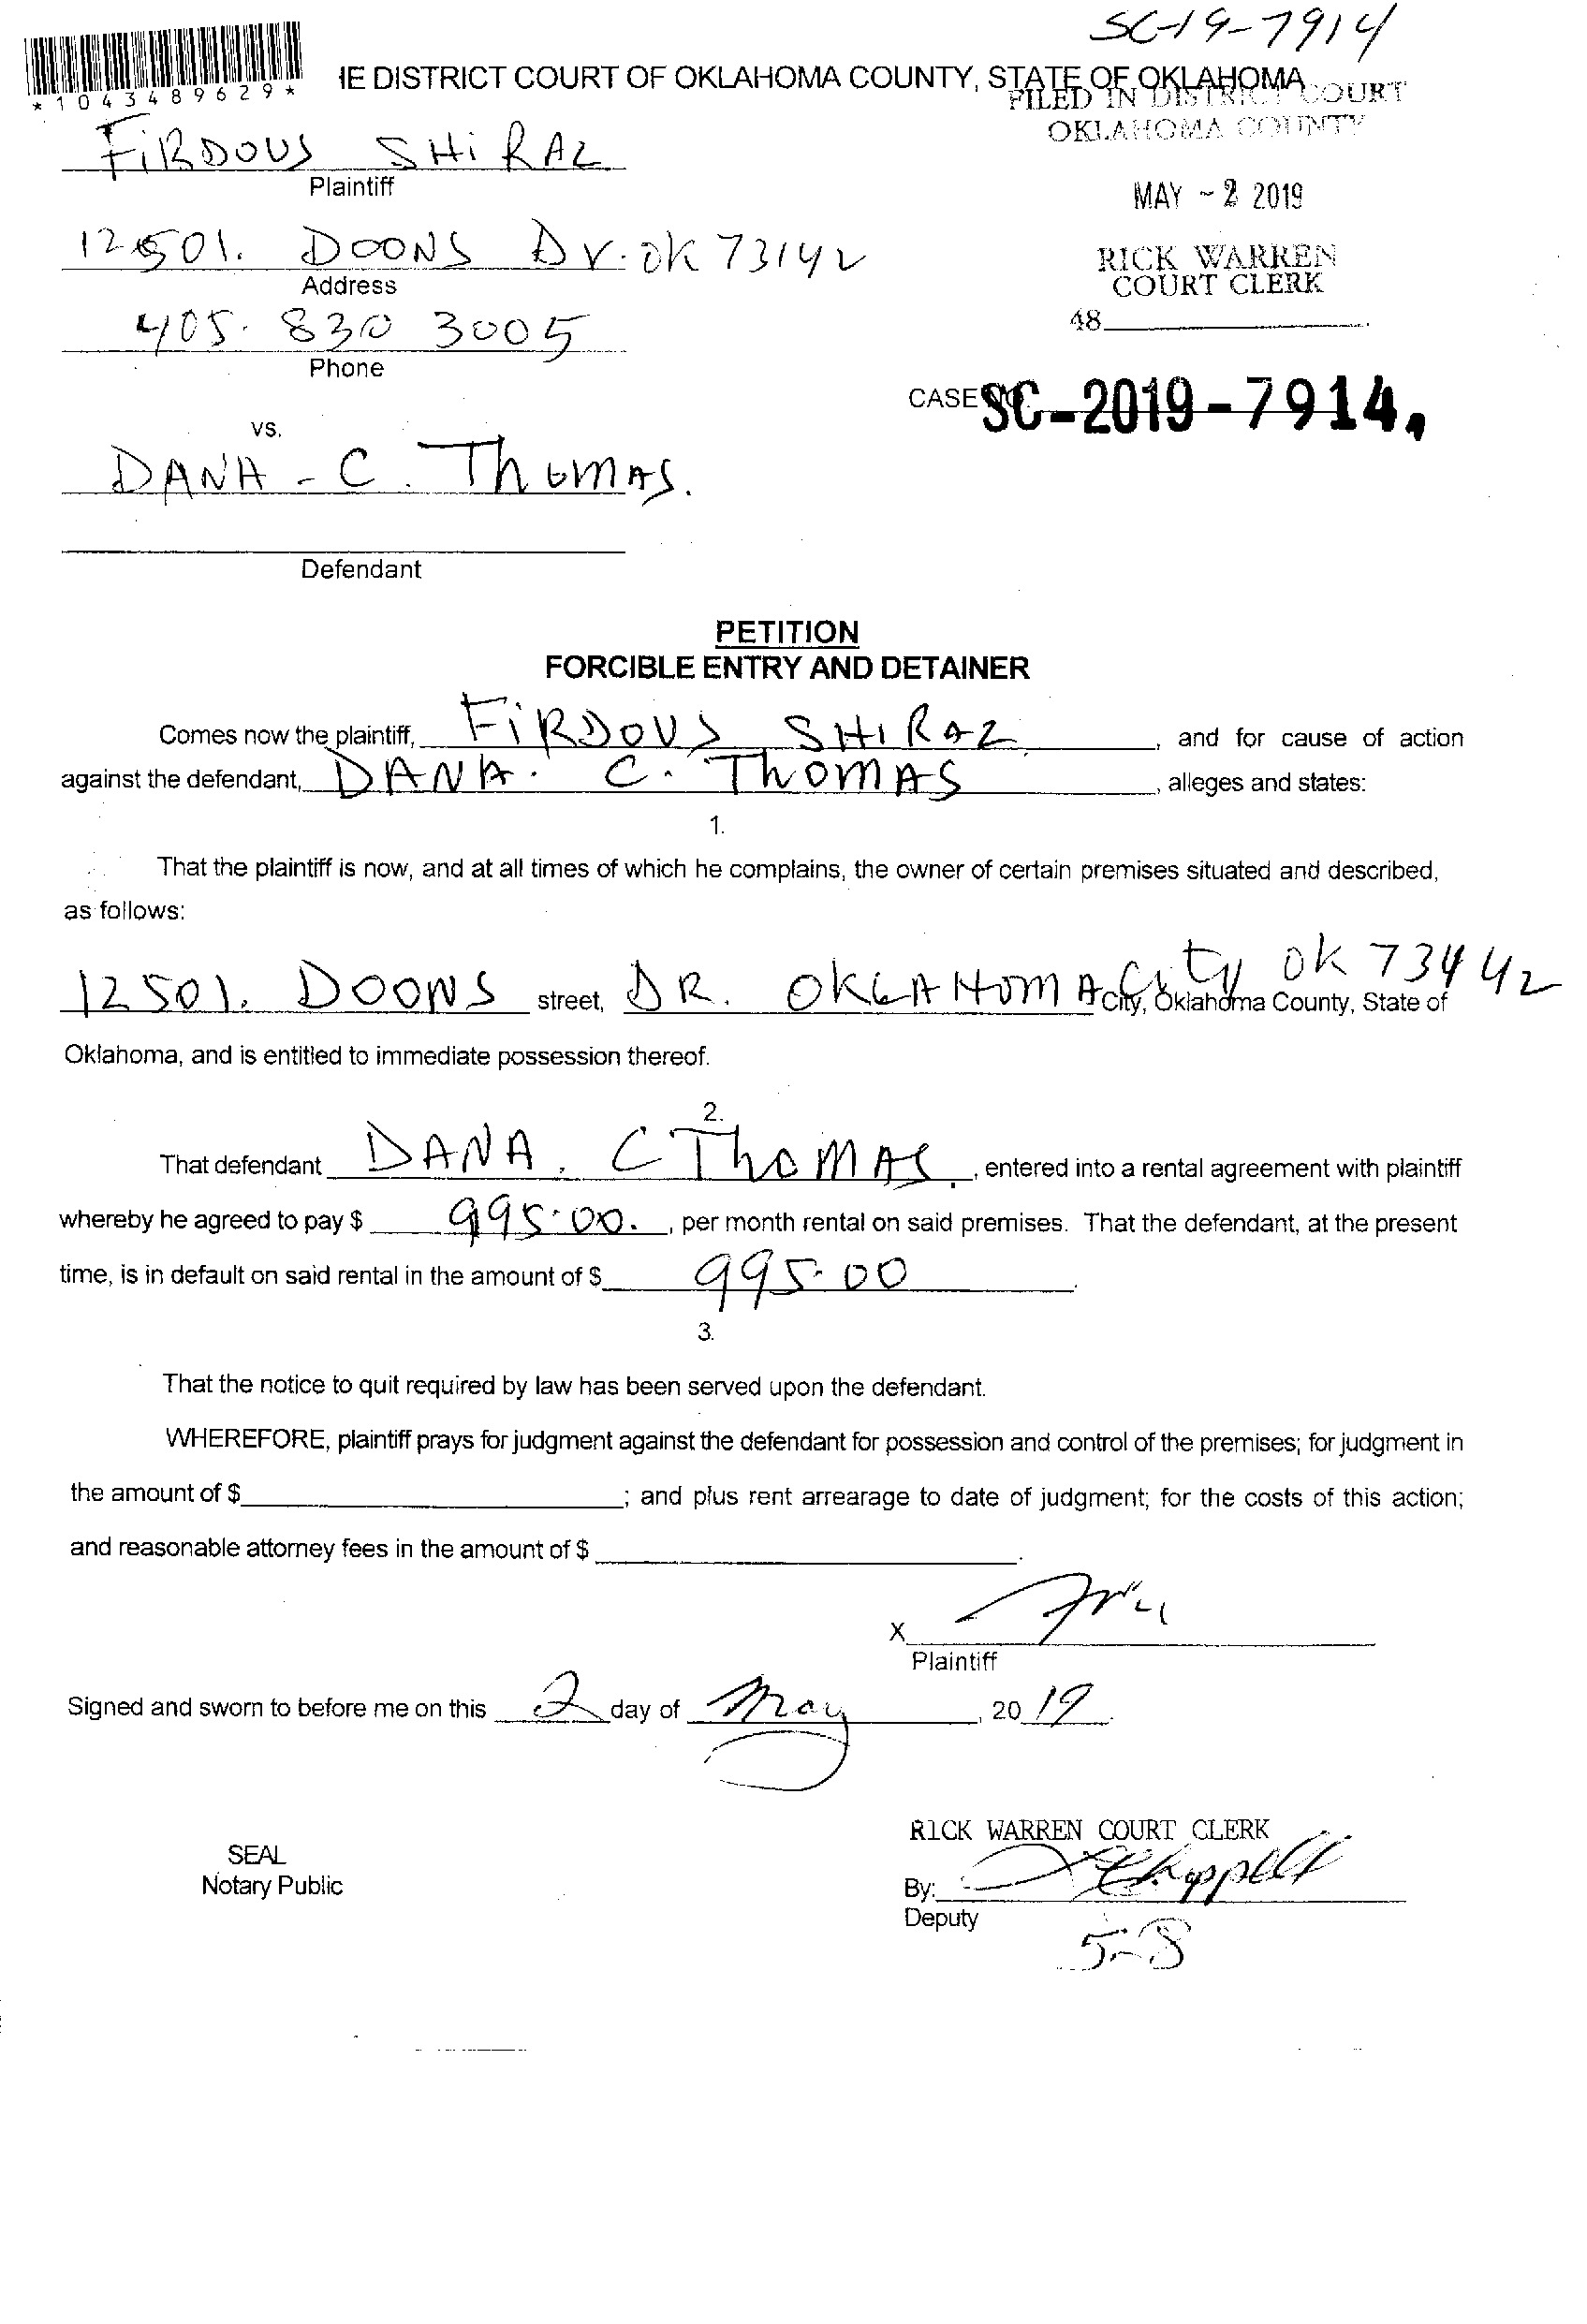 SC-19-7914
*1043489629*
IE DISTRICT COURT OF OKLAHOMA COUNTY, STATE OF OKLAHOMA
FILED IN DISTRICT COURT
OKLAHOMA COUNTY
FIRDOUS SHIRAZ
Plaintiff
MAY - 2 2019
12501. DOONS Dr. OK 73142
Address
RICK WARREN
COURT CLERK
405. 830 3005
Phone
48
CASE NO. SC-2019-7914
vs.
DANA - C. THOMAS.
Defendant
PETITION
FORCIBLE ENTRY AND DETAINER
Comes now the plaintiff, FIRDOUS SHIRAZ, and for cause of action
against the defendant, DANA. C. THOMAS, alleges and states:
1.
That the plaintiff is now, and at all times of which he complains, the owner of certain premises situated and described,
as follows:
12501. DOONS street, DR. OKLAHOMA City OK 73442 City, Oklahoma County, State of
Oklahoma, and is entitled to immediate possession thereof.
2.
That defendant DANA. C THOMAS, entered into a rental agreement with plaintiff
whereby he agreed to pay $ 995.00., per month rental on said premises. That the defendant, at the present
time, is in default on said rental in the amount of $ 995.00.
3.
That the notice to quit required by law has been served upon the defendant.
WHEREFORE, plaintiff prays for judgment against the defendant for possession and control of the premises; for judgment in
the amount of $; and plus rent arrearage to date of judgment; for the costs of this action;
and reasonable attorney fees in the amount of $.
X
Plaintiff
Signed and sworn to before me on this 2 day of May, 2019.
RICK WARREN COURT CLERK
SEAL
Notary Public
By:
Deputy
5-8